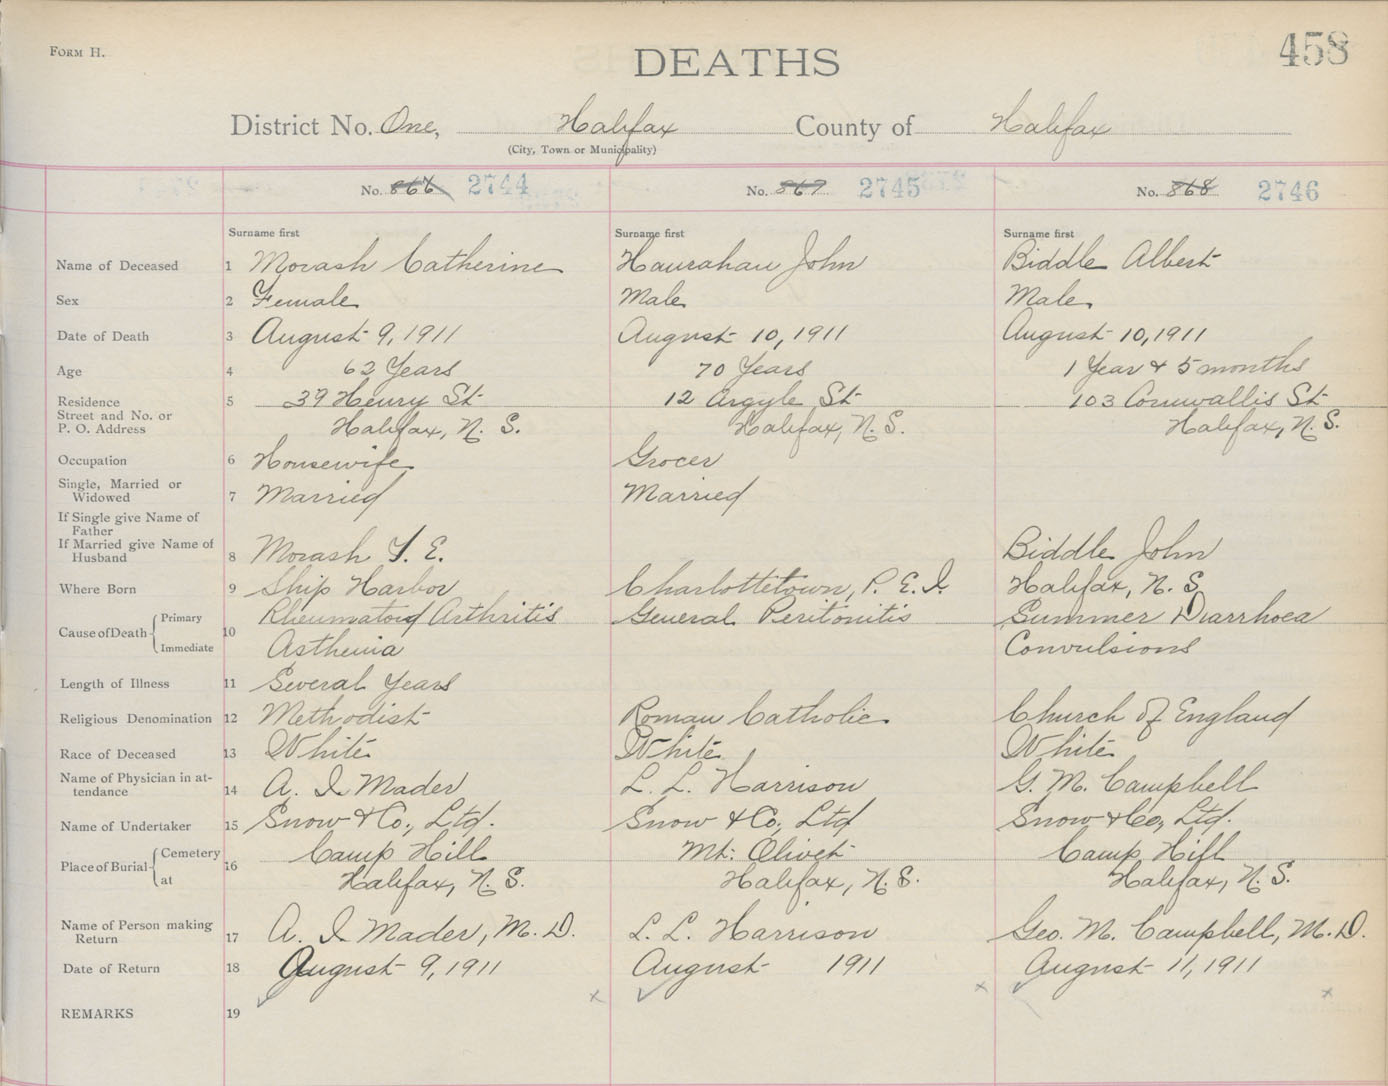 FORM H.
DEATHS
458
District No. One, Halifax County of Halifax
(City, Town or Municipality)
No. 866 2744 No. 867 2745 No. 868 2746
Surname first Surname first Surname first
Name of Deceased 1 Morash Catherine Haurahan John Biddle Albert
Sex 2 Female Male Male
Date of Death 3 August 9, 1911 August 10, 1911 August 10, 1911
Age 4 62 Years 70 Years 1 Year & 5 months
Residence 5 39 Henry St 12 Argyle St 103 Cornwallis St
Street and No. or
P. O. Address Halifax, N. S. Halifax, N. S. Halifax, N. S.
Occupation 6 Housewife Grocer
Single, Married or
Widowed 7 Married Married
If Single give Name of
Father
If Married give Name of
Husband 8 Morash E. Biddle John
Where Born 9 Ship Harbor Charlottetown, P. E. I. Halifax, N. S.
Cause of Death Primary 10 Rheumatoid Arthritis General Peritonitis Summer Diarrhoea
Immediate Asthenia Convulsions
Length of Illness 11 Several Years
Religious Denomination 12 Methodist Roman Catholic Church of England
Race of Deceased 13 White White White
Name of Physician in at-
tendance 14 A. I. Mader L. L. Harrison G. M. Campbell
Name of Undertaker 15 Snow & Co., Ltd. Snow & Co., Ltd Snow & Co., Ltd.
Place of Burial Cemetery 16 Camp Hill Mt. Olivet Camp Hill
at Halifax, N. S. Halifax, N. S. Halifax, N. S.
Name of Person making
Return 17 A. I. Mader, M. D. L. L. Harrison Geo. M. Campbell, M. D.
Date of Return 18 August 9, 1911 August 1911 August 11, 1911
REMARKS 19